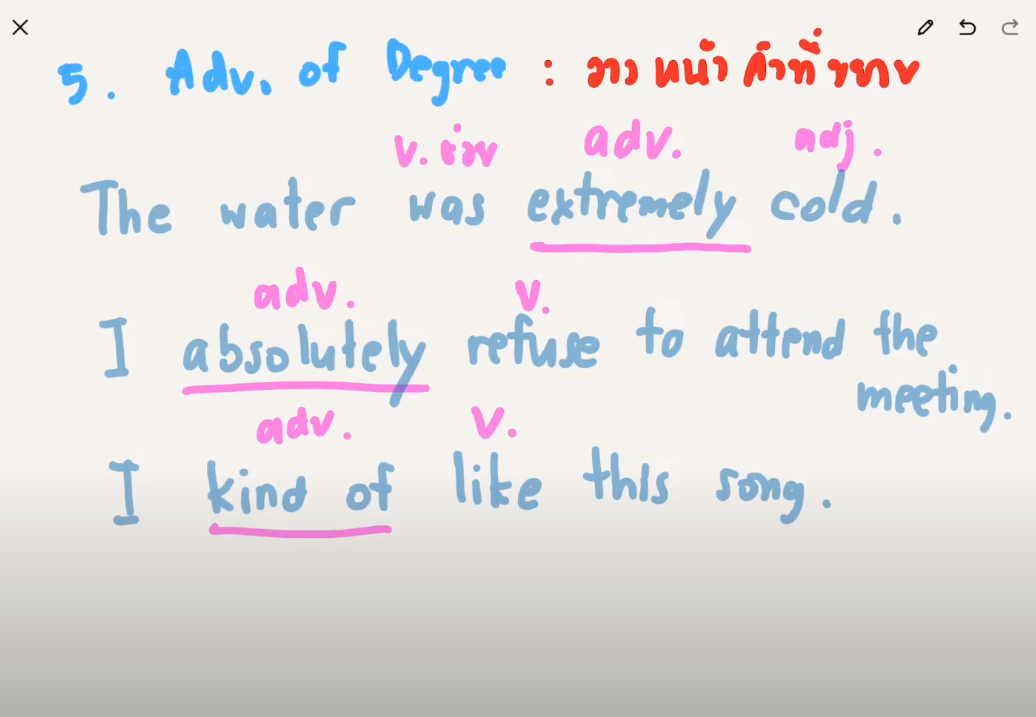 5. Adv. of Degree : วางหน้าคำที่ขยาย
v. ช่วย adv. adj.
The water was extremely cold.
adv. v.
I absolutely refuse to attend the
meeting.
adv. v.
I kind of like this song.